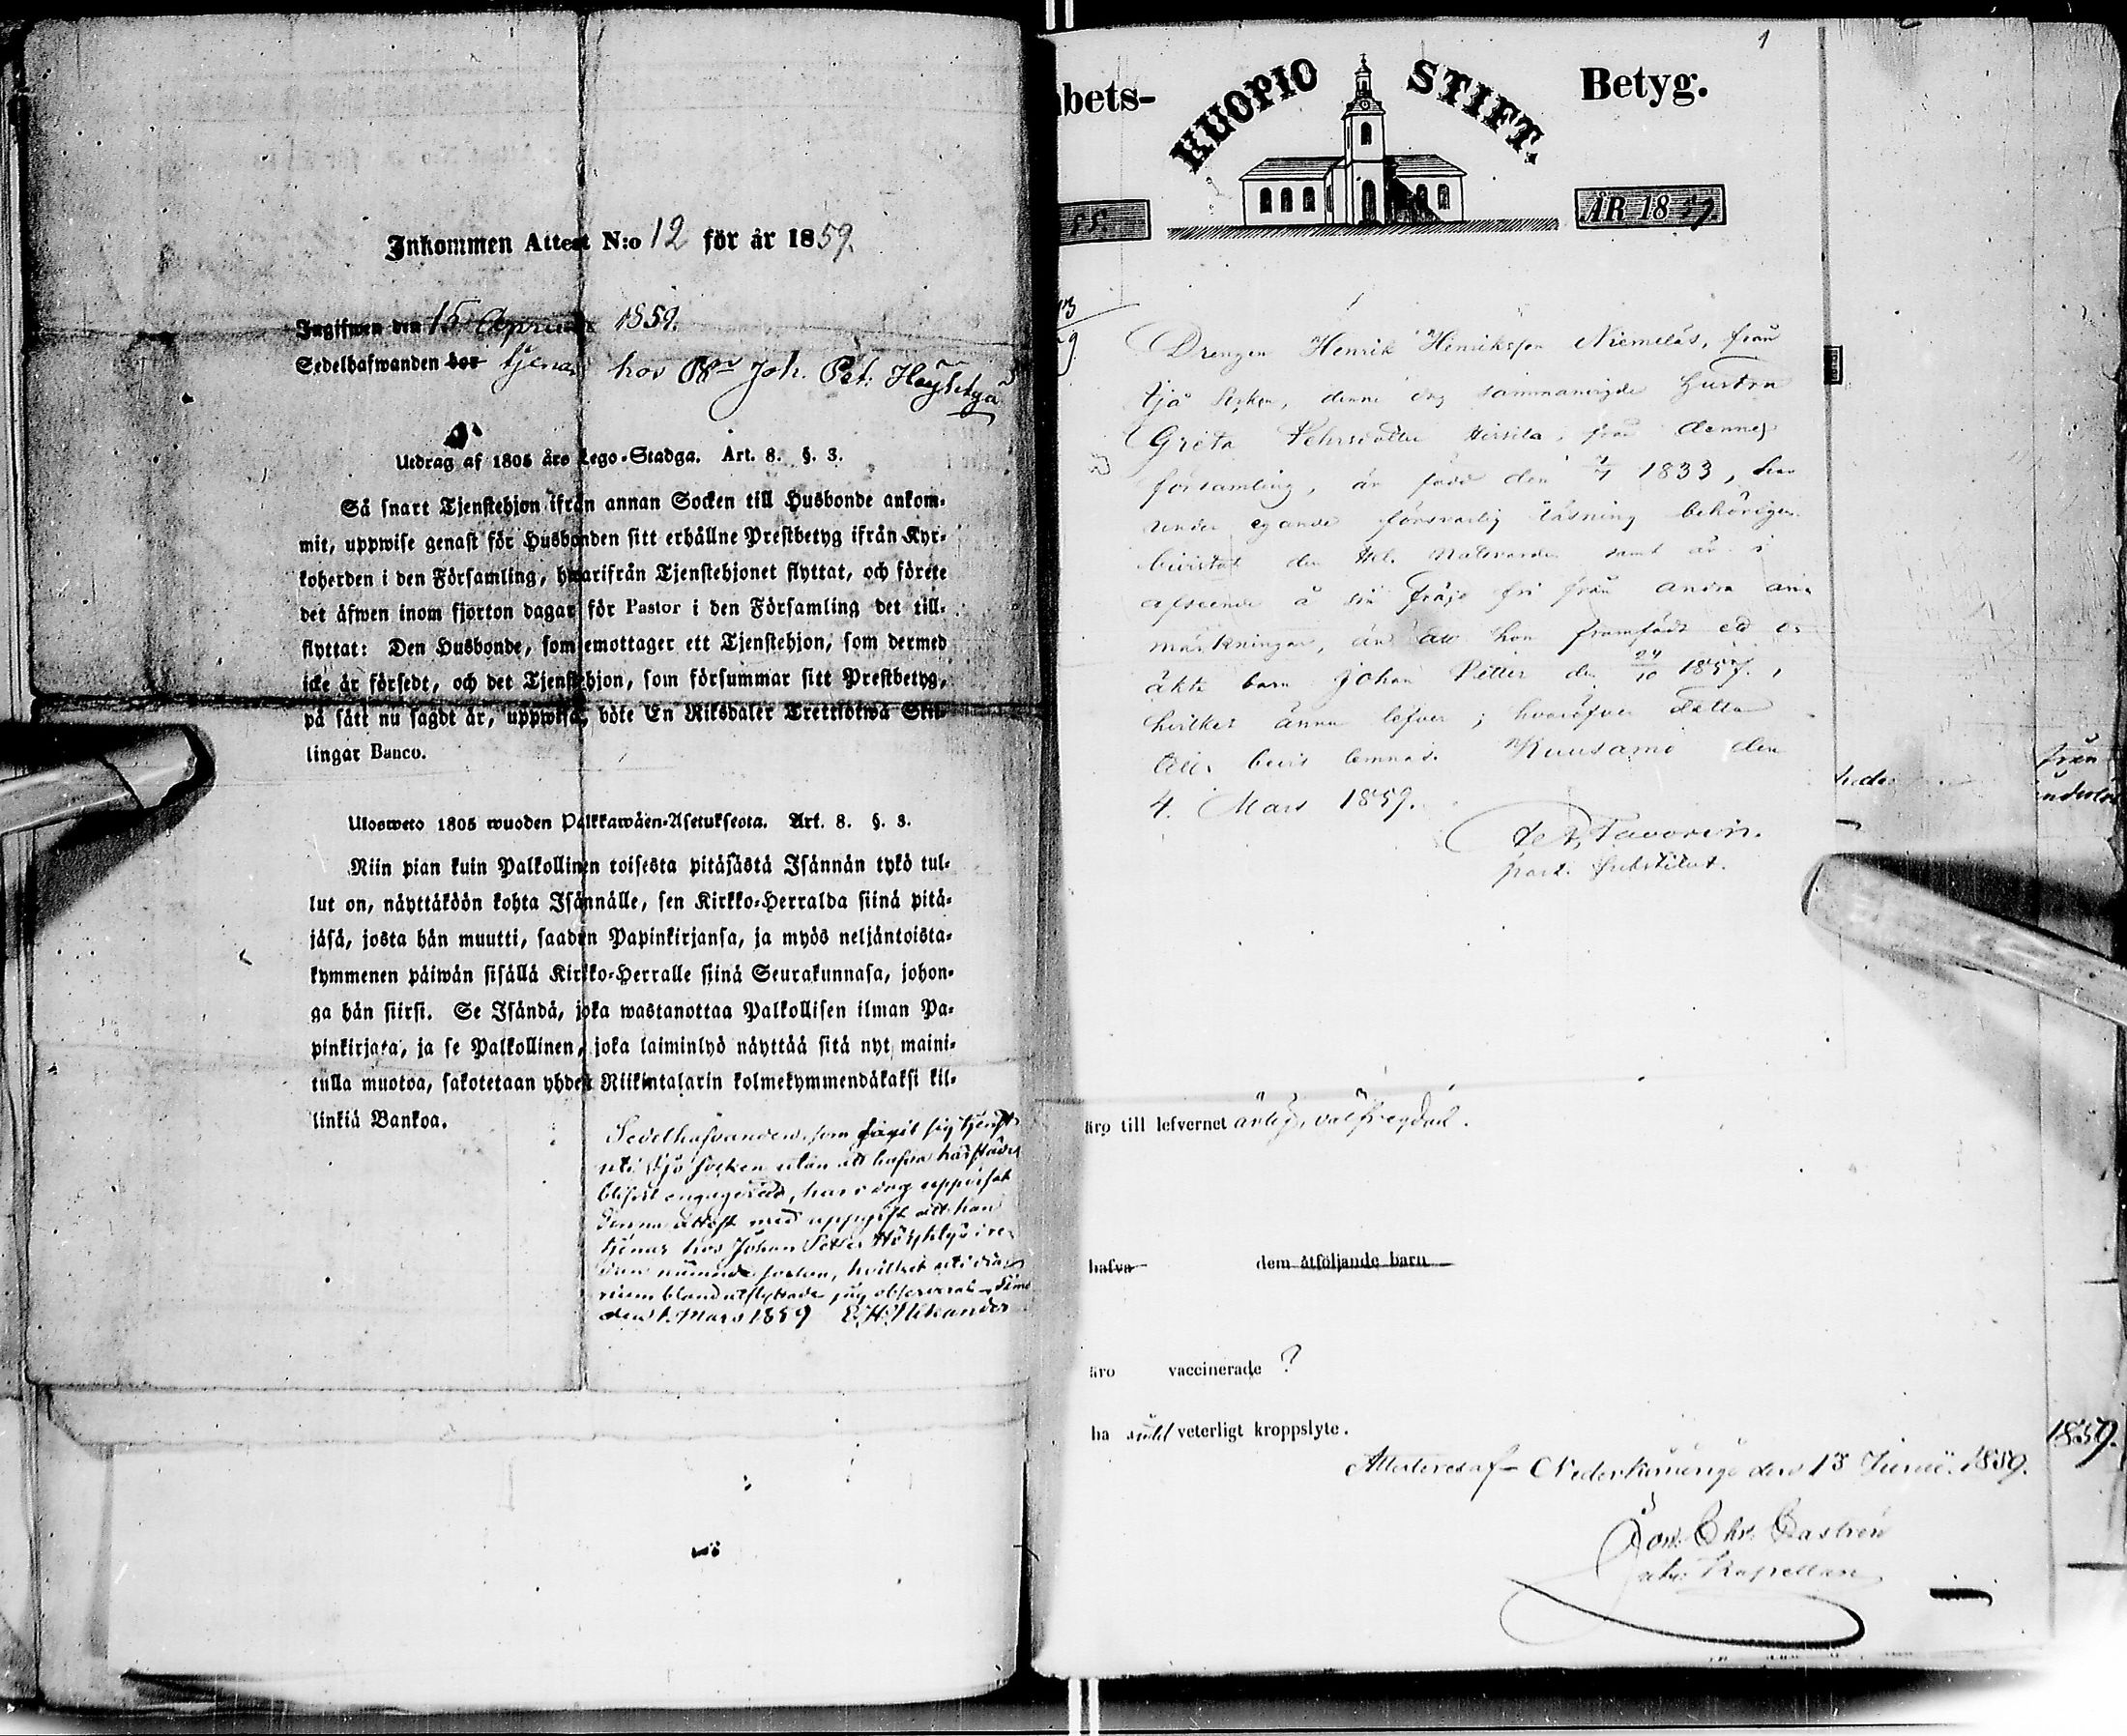 Inkommen Attest N:o 12 för år 1859.
Ingifwen den 15 April 1859.
Sedelhafwanden bor tjenar hos Joh. Pet.
Utdrag af 1805 års Lego-Stadga. Art. 8. §. 3.
Så snart Tjenstehjon ifrån annan Socken till Husbonde ankom-
mit, uppwise genast för Husbonden sitt erhållne Prestbetyg ifrån Kyr-
koherden i den Församling, hwarifrån Tjenstehjonet flyttat, och förete
det äfwen inom fjorton dagar för Pastor i den Församling det till-
flyttat: Den Husbonde, som emottager ett Tjenstehjon, som dermed
icke är försedt, och det Tjenstehjon, som försummar sitt Prestbetyg,
på sätt nu sagdt är, uppwisa, böte En Riksdaler Trettiotwå Skil-
lingar Banco.
Ulosweto 1805 wuoden Palkkawäen-Asetuksesta. Art. 8. §. 3.
Niin pian kuin Palkollinen toisesta pitäjästä Isännän tykö tul-
lut on, näyttäköön kohta Isännälle, sen Kirkko-Herralda siinä pitä-
jäsä, josta hän muutti, saadun Papinkirjansa, ja myös neljäntoista-
kymmenen päiwän sisällä Kirkko-Herralle siinä Seurakunnasa, johon-
ga hän siirsi. Se Isändä, joka wastanottaa Palkollisen ilman Pa-
pinkirjata, ja se Palkollinen, joka laiminlyö näyttää sitä nyt maini-
tulla muotoa, sakotetaan yhden Riikintalarin kolmekymmendäkaksi kil-
linkiä Bankoa.
Sedelhafvanden, som sig tjenst
uti Ijo socken utan att hafva härstädes
blifvit engagerad, har i dag uppvisat
denna attest med uppgift att han
tjenar hos Johan Petter
nämnde socken, hvilket uti
bland utflyttade jag observerat
den 1. Mars 1859
bets-
KUOPIO STIFT.
Betyg.
1
55.
ÅR 1859.
Drengen Henrik Henriksson Niemelä, från
Ijo Socken, denne dag sammanvigde hustru
Greta Pehrsdotter från dennes
församling, är född den 1833, har
under egande försvarlig läsning behörigen
bevistat den Hel. Nattvarden samt är i
afseende å sin frejd fri från andra an-
märkningar, än att hon framfödt ett o-
äkta barn Johan Petter den 24/10 1857,
hvilket ännu lefver; hvaröfver detta
till bevis lemnas. Kuusamo den
4. Mars 1859.
past. substitut.
äro till lefvernet ärlig, välfrejdad.
hafva dem åtföljande barn
äro vaccinerade ?
ha veterligt kroppslyte.
Attesteras af Nederkiminge den 13 Junii 1859.
Chr. Castrén
Kapellan
från
1859.